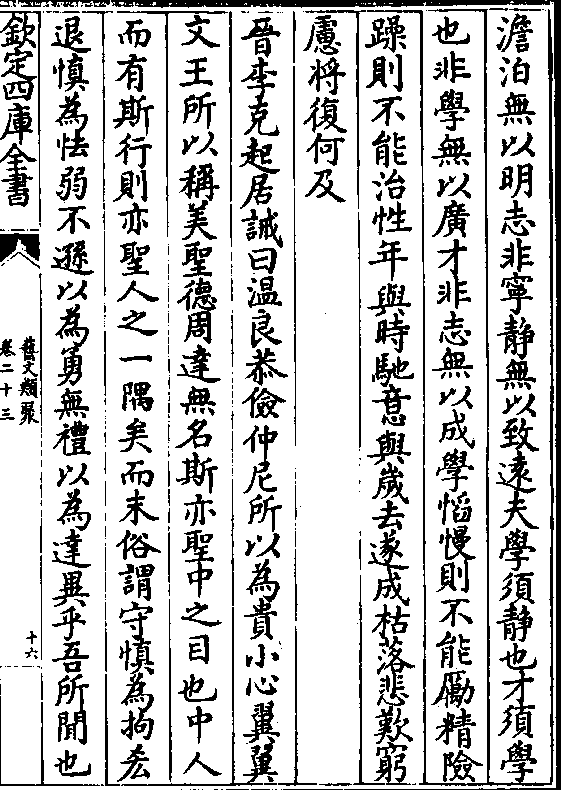 澹泊無以明志非寧靜無以致遠夫學須靜也才須學
也非學無以廣才非志無以成學慆慢則不能勵精險
躁則不能治性年與時馳意與嵗去遂成枯落悲歎窮
廬將復何及
晉李克起居誡曰温良恭儉仲尼所以為貴小心翼翼
文王所以稱美聖德周達無名斯亦聖中之目也中人
而有斯行則亦聖人之一隅矣而末俗謂守慎為拘吝
退慎為怯弱不遜以為勇無禮以為達異乎吾所聞也
欽定四庫全書
藝文類聚
卷二十三
十六